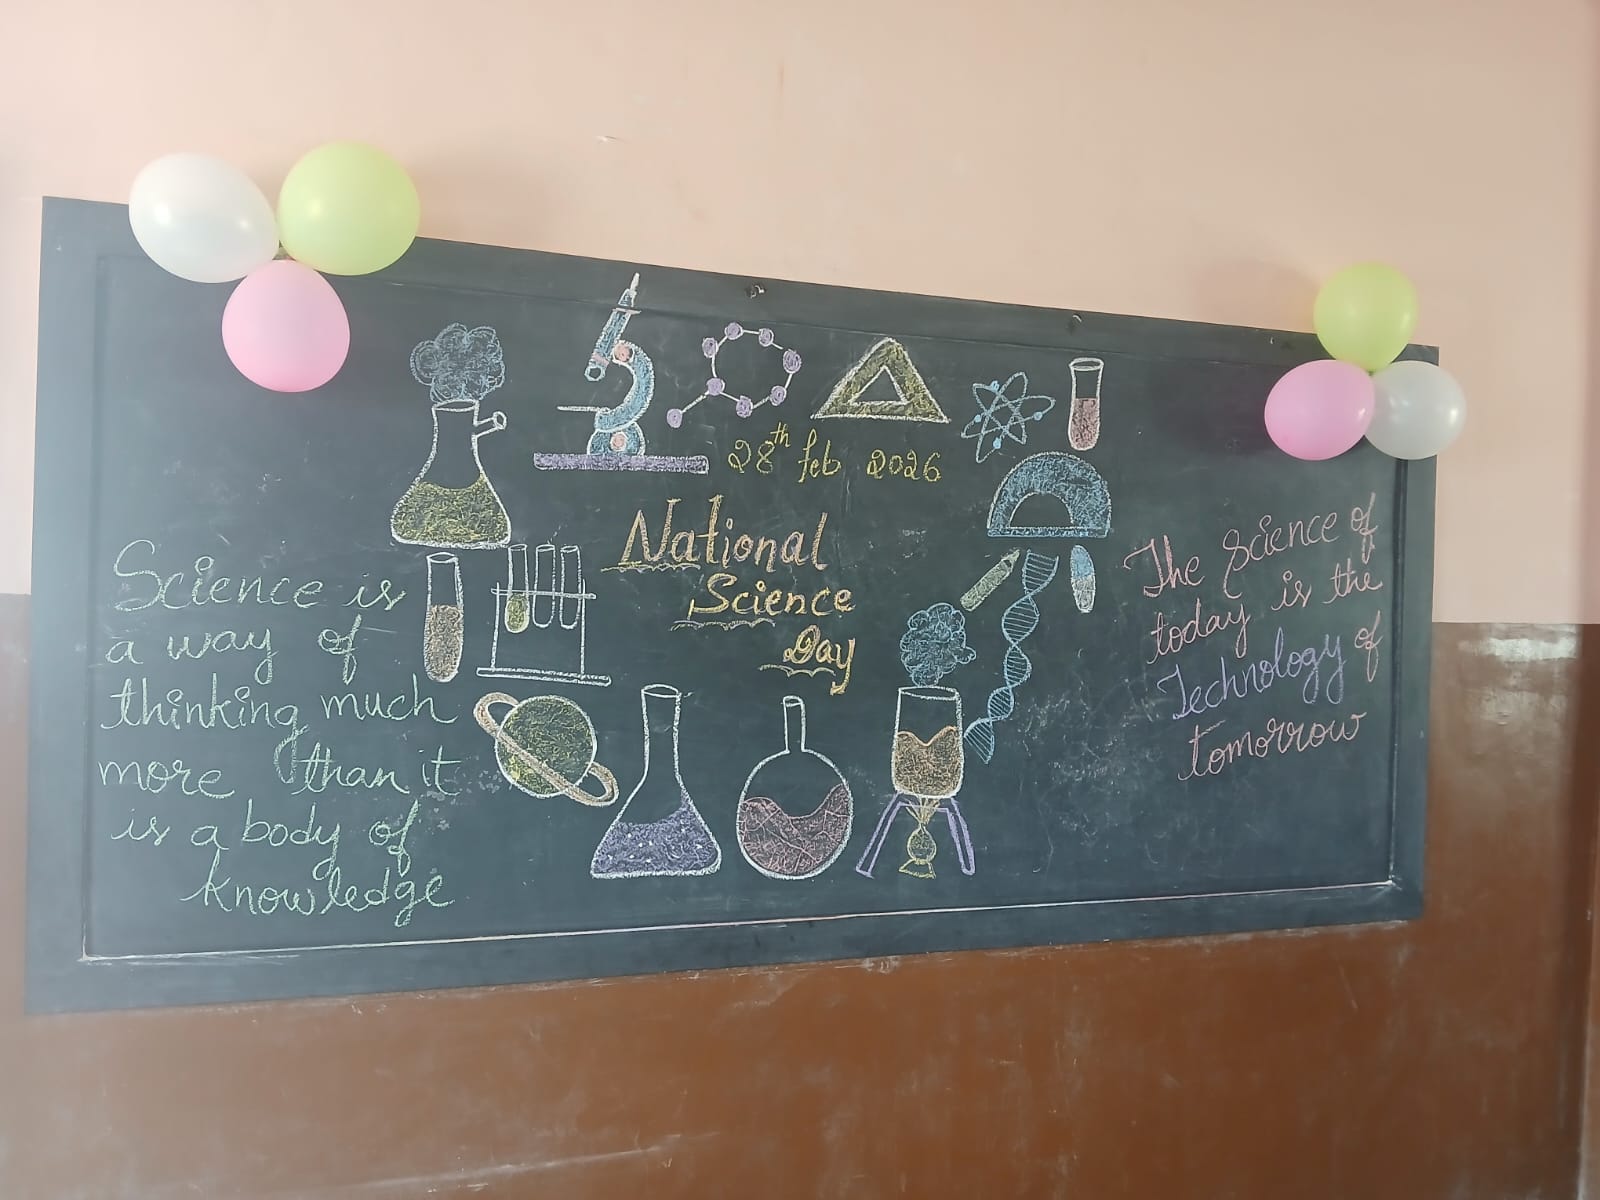 28th feb 2026
National
Science
Day
Science is
a way of
thinking much
more than it
is a body of
knowledge
The Science of
today is the
Technology of
tomorrow